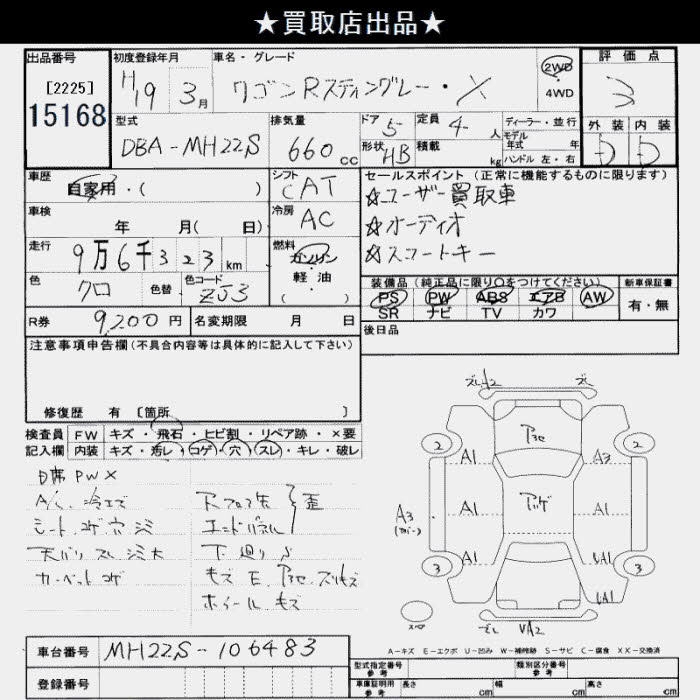 ★買取店出品★
出品番号 初度登録年月 車名・グレード 2WD 評価点
[2225] H19 3月 ワゴンRスティングレー・X 4WD 3
15168 型式 排気量 ドア 5 定員 4 人 ディーラー・並行 外装 内装
DBA-MH22S 660cc 形状 HB 積載 kg モデル年式 年 ハンドル 左・右 D D
車歴 シフト セールスポイント(正常に機能するものに限ります)
自家用・( ) CAT ☆ユーザー買取車
車検 年 月(日) 冷房 AC ☆オーディオ
走行 9万6千323km 燃料 ガソリン・軽油( ) ☆スマートキー
色 クロ 色替 色コード ZJ3 装備品(純正品に限り○をつけてください) 新車保証書
PS PW ABS エアB AW 有・無
SR ナビ TV カワ
R券 9,200円 名変期限 月 日 後日品
注意事項申告欄(不具合内容等は具体的に記入して下さい)
修復歴 有 [箇所 ]
検査員 FW キズ・飛石・ヒビ割・リペア跡・×要
記入欄 内装 キズ・汚レ・コゲ・穴・スレ・キレ・破レ
D席PW×
A/C 冷エズ
シートコゲ穴シミ
天バリスレシミ大
カーペットコゲ
Rフロア先
エンドパネル
歪
下廻りS
キズE
ホイールキズ
ズレ
2 2
A1 A3
A3
(カバー)
A1 A1
A1 UA1
3 3
UA1
スペア ズレ UA2
A-キズ E-エクボ U-凹み W-補修跡 S-サビ C-腐食 XX-交換済
車台番号 MH22S-106483
登録番号
型式指定番号 参考 類別区分番号 参考
車庫証明用 参考 長さ cm 幅 cm 高さ cm